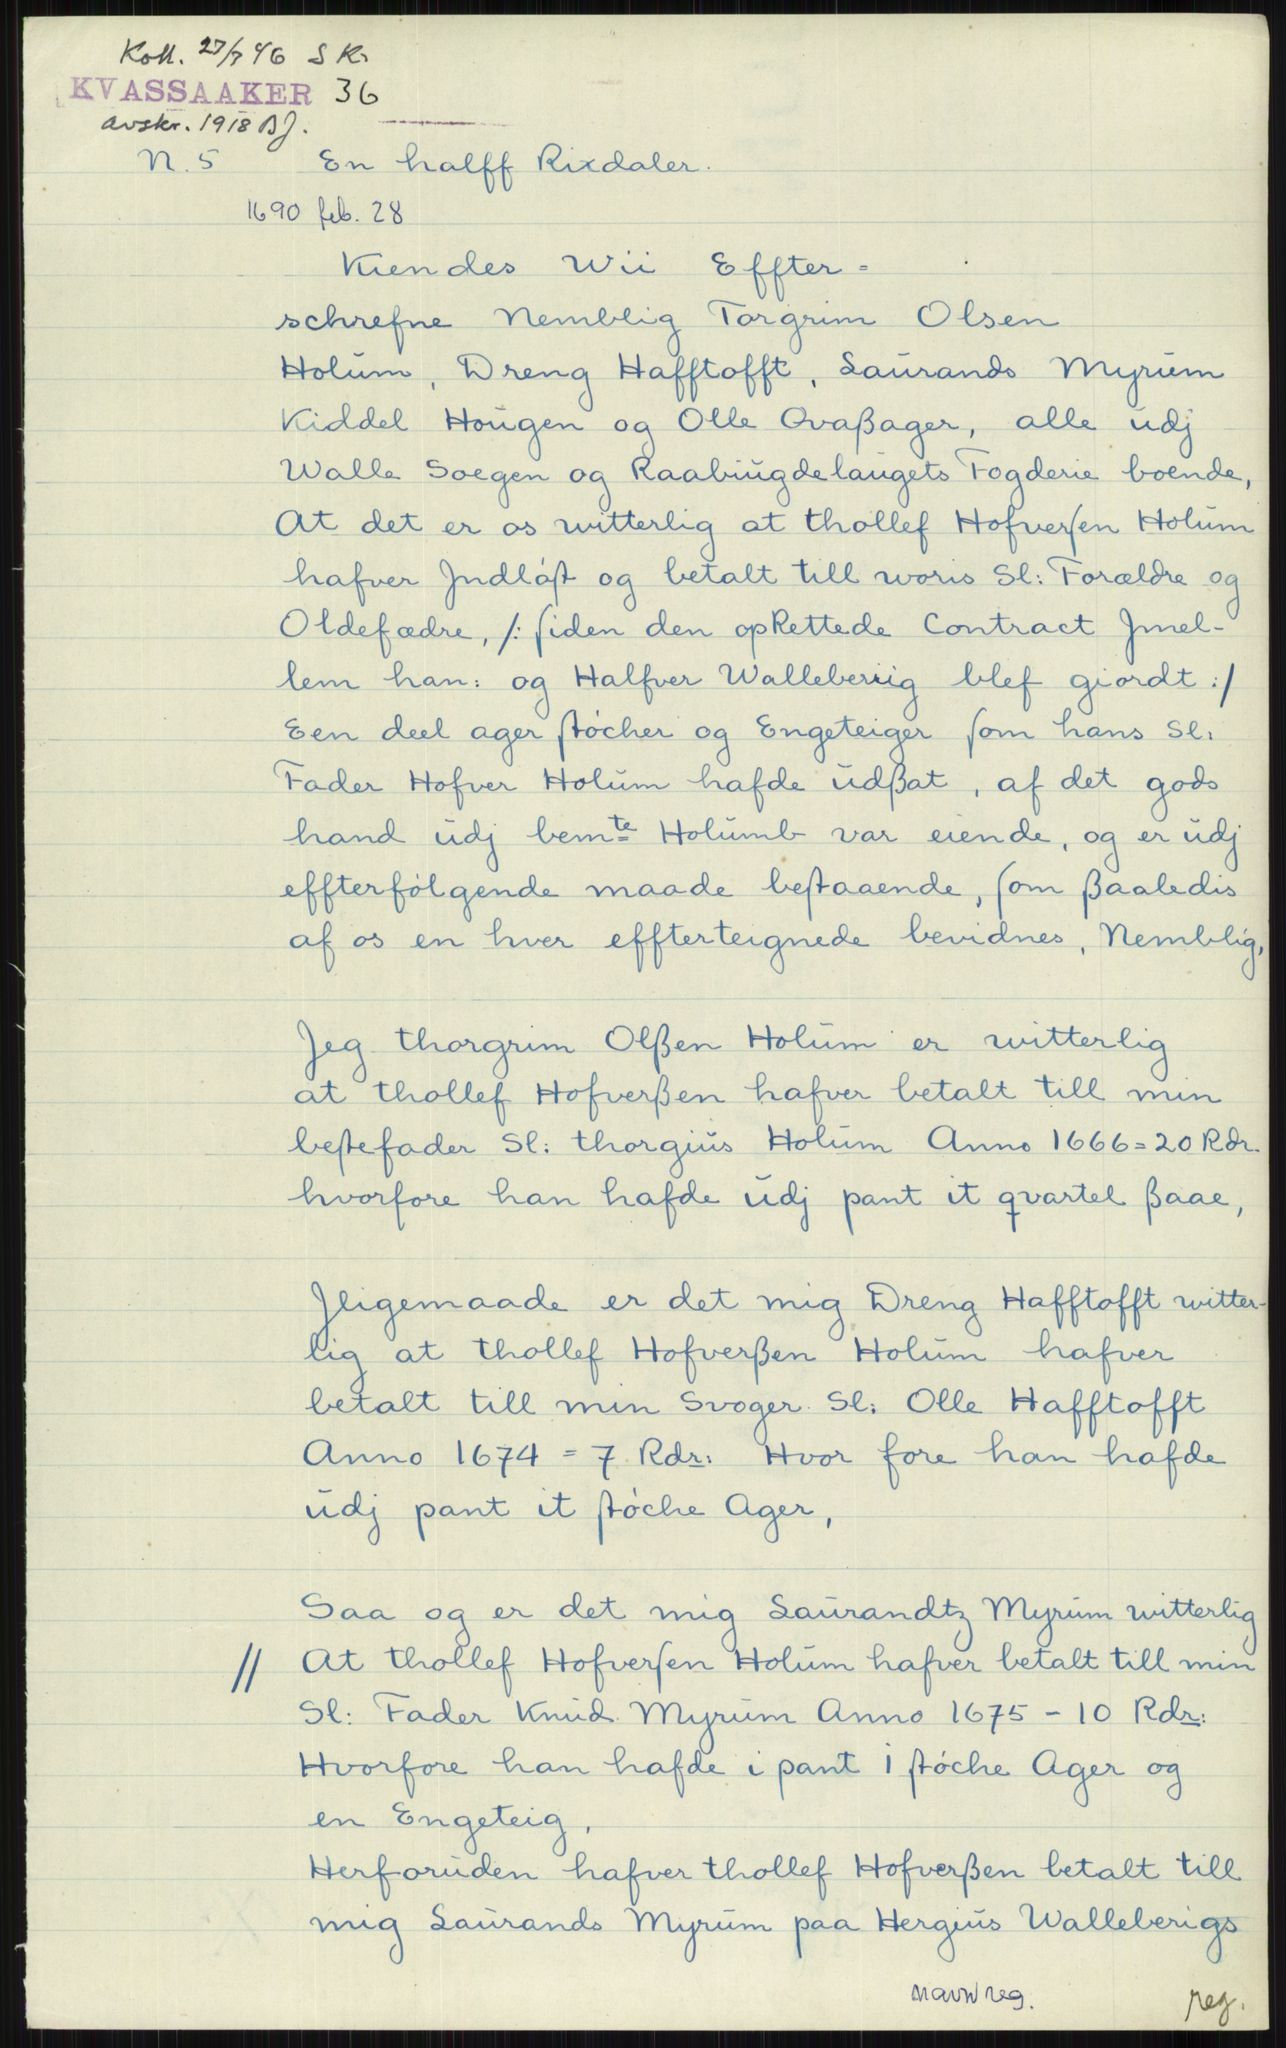 Koll. 27/7 46 S Kr.
KVASSAAKER 36
avskr. 1918 BJ.
N. 5 En halff Rixdaler.
1690 feb. 28
Kiendes Wii Effter=
schrefne Nemblig Torgrim Olsen
Holŭm, Dreng Hafftofft, Saŭrands Myrŭm
Kiddel Hoŭgen og Olle Qvaßager, alle ŭdj
Walle Soegen og Raabiŭgdelaŭgets Fogderie boende,
At det er os witterlig at thollef Hofverſen Holŭm
hafver Jndlóſt og betalt till woris Sl: Forældre og
Oldefædre, /: ſiden den opRettede Contract Jmel-
lem han: og Halfver Walleberiig blef giordt :/
Een deel ager ſtócher og Engeteiger ſom hans Sl:
Fader Hofver Holŭm hafde ŭdßat, af det gods
hand ŭdj bemte Holŭmb var eiende, og er ŭdj
effterfólgende maade beſtaaende, ſom ßaaledis
af os en hver effterteignede bevidnes, Nemblig,
Jeg thorgrim Olßen Holŭm er witterlig
at thollef Hofverßen hafver betalt till min
beſtefader Sl: thorgiŭs Holŭm Anno 1666=20 Rdr.
hvorfore han hafde ŭdj pant it qvartel ßaae,
Jligemaade er det mig Dreng Hafftofft witter-
lig at thollef Hofverßen Holŭm hafver
betalt till min Svoger Sl: Olle Hafftofft
Anno 1674 = 7 Rdr: Hvor fore han hafde
ŭdj pant it ſtóche Ager,
Saa og er det mig Saŭrandtz Myrŭm witterlig
// At thollef Hofverſen Holŭm hafver betalt till min
Sl: Fader Knŭd Myrŭm Anno 1675 - 10 Rdr:
Hvorfore han hafde i pant 1 ſtóche Ager og
en Engeteig,
Herforŭden hafver thollef Hofverßen betalt till
mig Saŭrands Myrŭm paa Hergiŭs Walleberigs
navnreg.
reg.